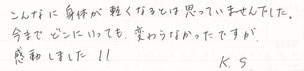 こんなに身体が軽くなるとは思っていませんでした。
今までどこにいっても、変わらなかったですが
感動しました!!
K.S